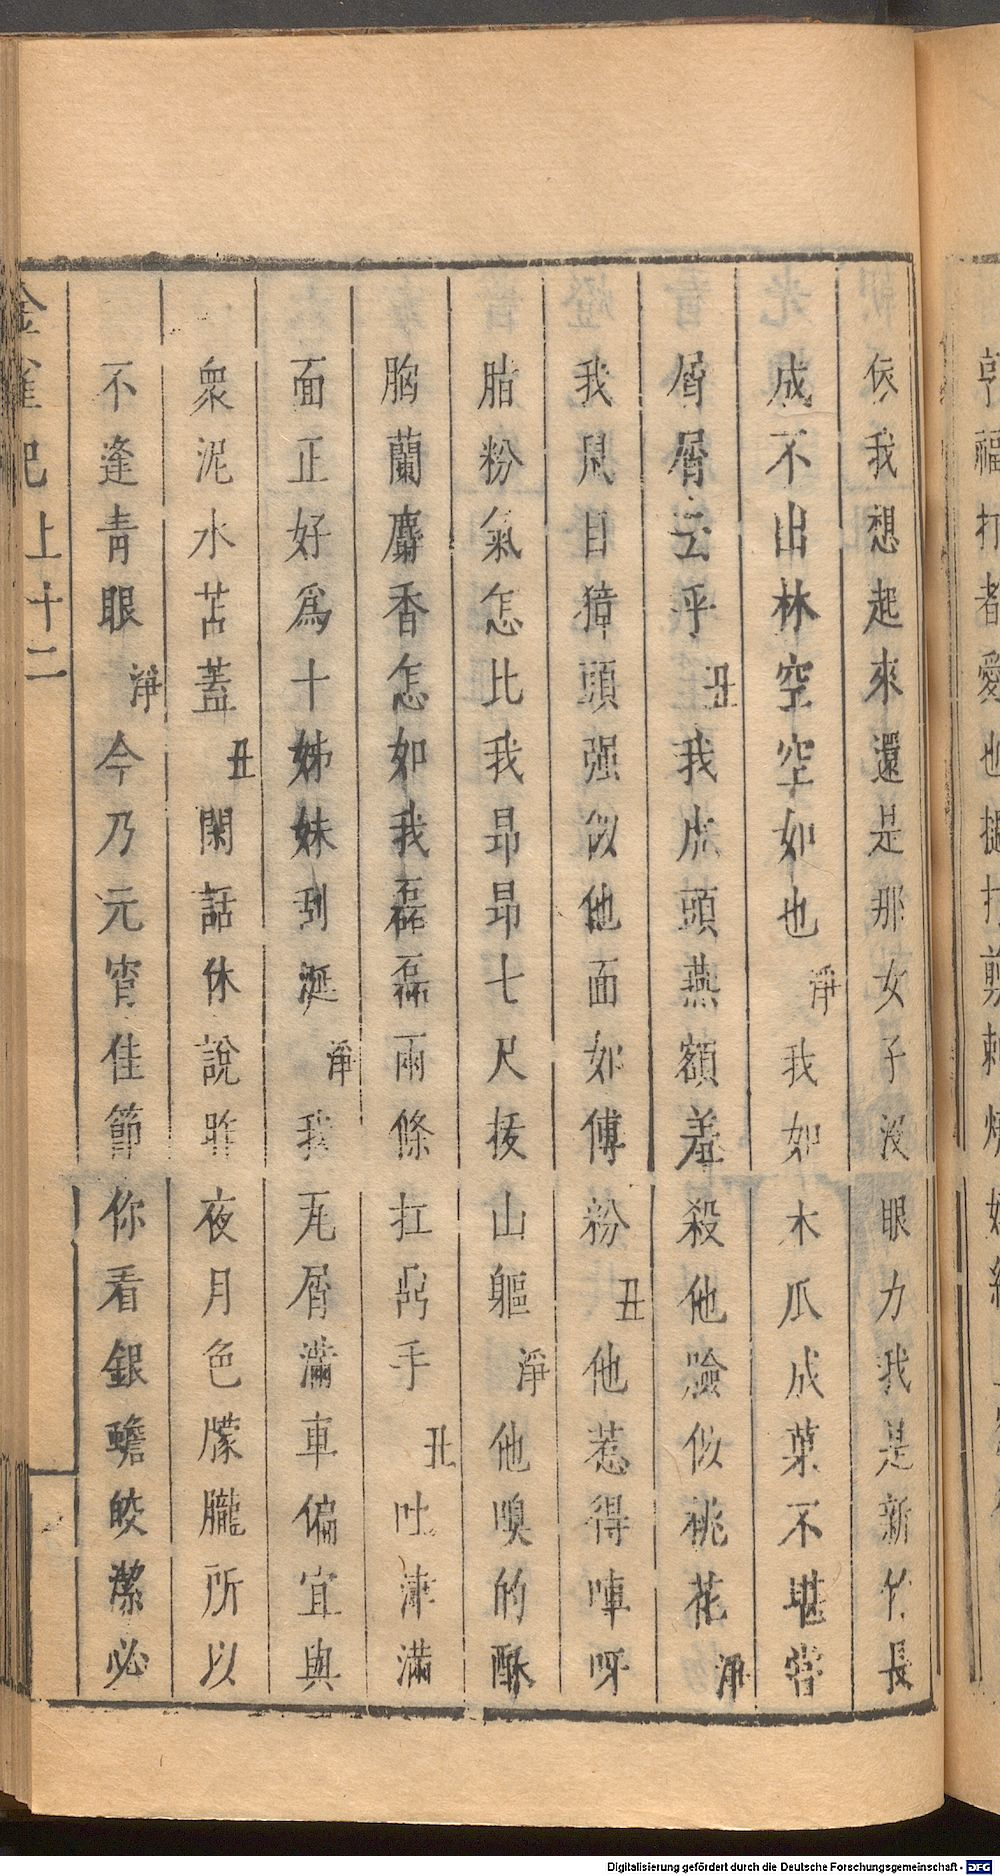 侅我想起來還是那女子沒眼力我是新竹長
成不出林空空如也淨我如木瓜成葉不堪嘗
屑屑云乎丑我虎頭燕額羞殺他臉似桃花淨
我鼠目獐頭强似他面如傅粉丑他惹得唓呀
脂粉氣怎比我昻昻七尺拔山軀淨他嗅的酥
胸蘭麝香怎如我磊磊兩條扛㢧手丑吐津滿
面正好爲十姊妹刮涎淨我瓦屑滿車偏宜與
衆泥水苫蓋丑閑話休說昨夜月色朦朧所以
不逢靑眼淨今乃元宵佳節你看銀蟾皎潔必
金雀記上十二
Digitalisierung gefördert durch die Deutsche Forschungsgemeinschaft - DFG